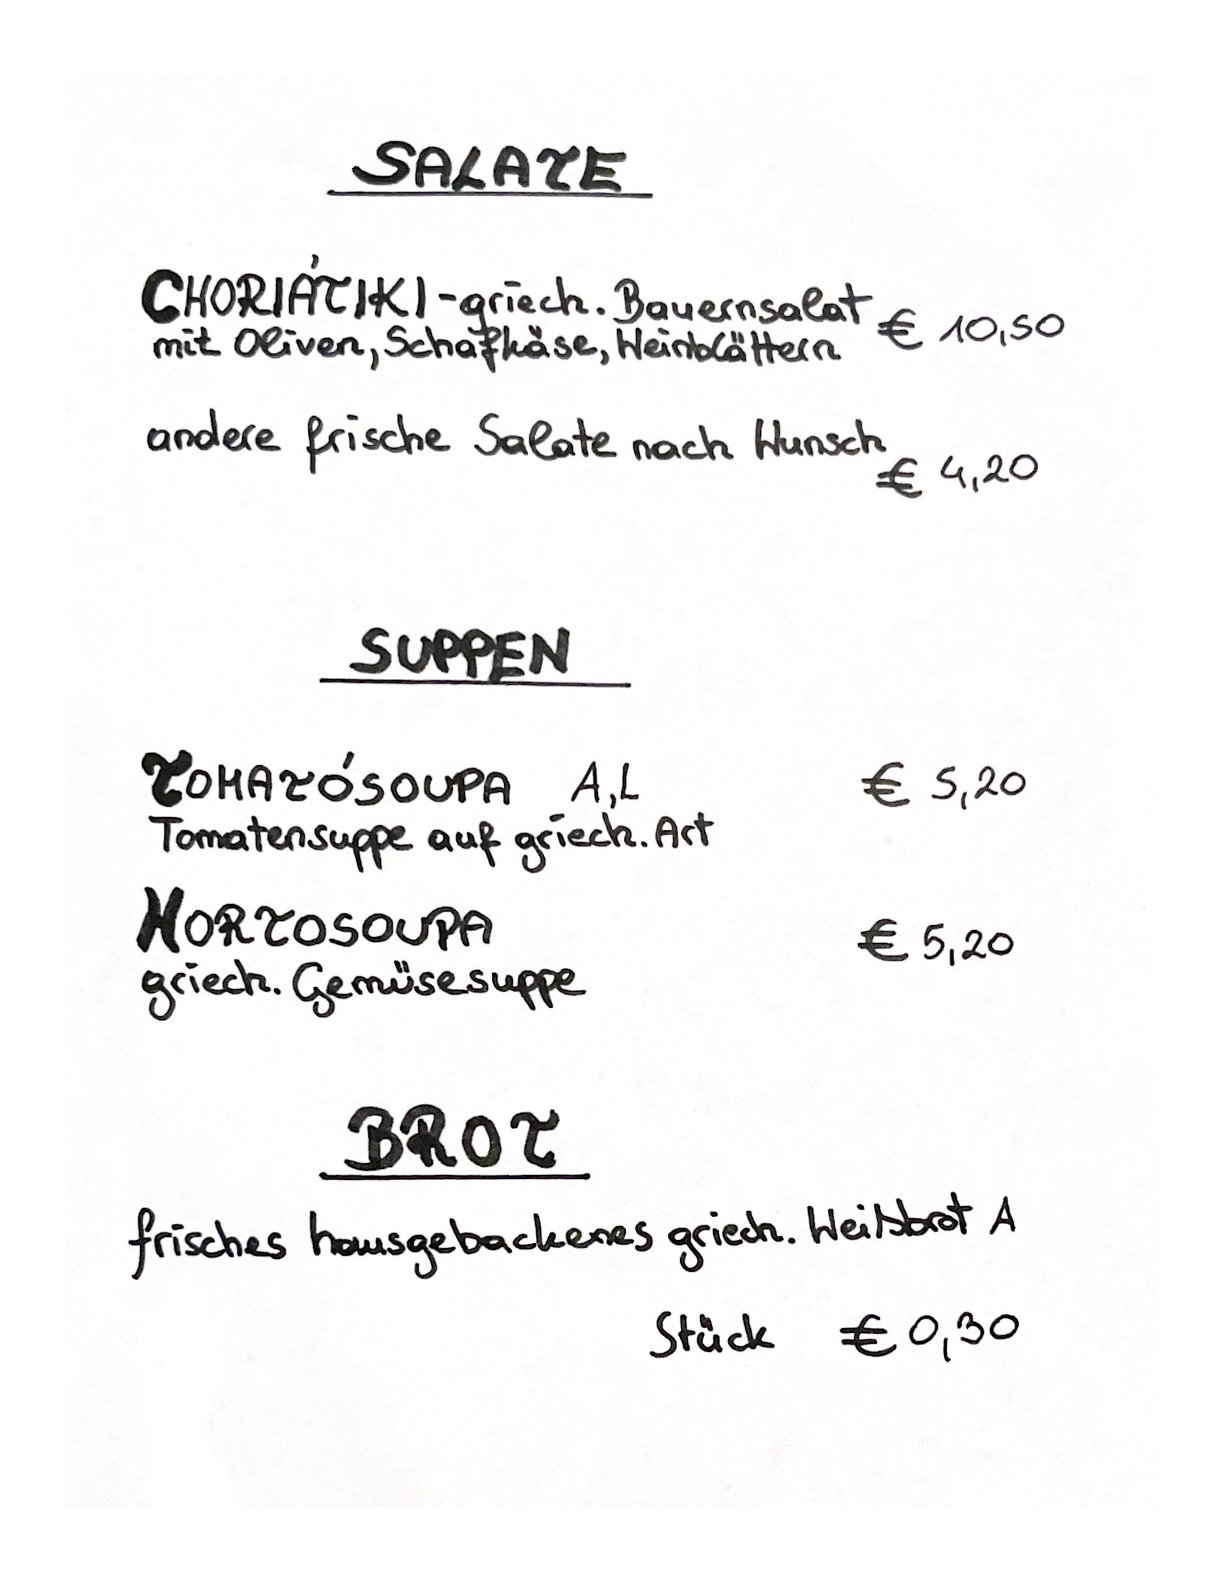 SALATE
CHORIÁTIKI-griech. Bauernsalat
mit Oliven, Schafkäse, Weinblättern € 10,50
andere frische Salate nach Wunsch
€ 4,20
SUPPEN
TOMATÓSOUPA A,L € 5,20
Tomatensuppe auf griech. Art
HORTOSOUPA € 5,20
griech. Gemüsesuppe
BROT
frisches hausgebackenes griech. Weißbrot A
Stück € 0,30